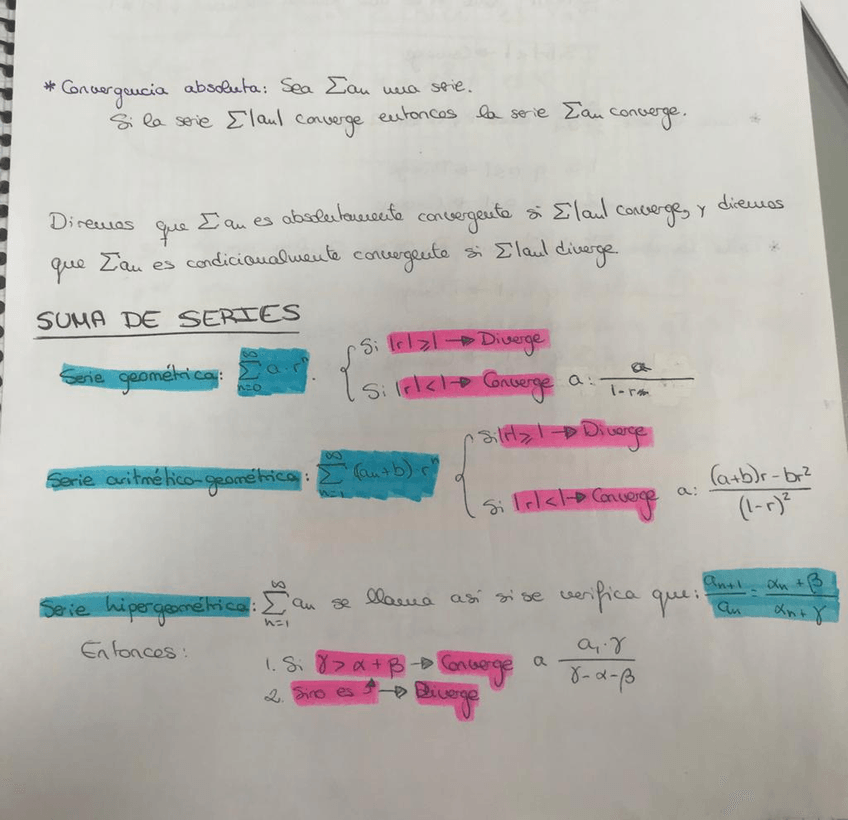 * Convergencia absoluta: Sea Σan una serie.
Si la serie Σ|an| converge entonces la serie Σan converge.
Diremos que Σan es absolutamente convergente si Σ|an| converge, y diremos
que Σan es condicionalmente convergente si Σ|an| diverge
SUMA DE SERIES
Serie geométrica: ∞ Σ n=0 a·rⁿ. { Si |r|≥1 → Diverge
Si |r|<1 → Converge a: a / 1-r
Serie aritmético-geométrica: ∞ Σ n=1 (an+b)·rⁿ { Si |r|≥1 → Diverge
Si |r|<1 → Converge a: (a+b)r - br² / (1-r)²
Serie hipergeométrica: ∞ Σ n=1 an se llama así si se verifica que: an+1 / an = αn+β / αn+γ
Entonces:
1. Si γ > α+β → Converge a a₁·γ / γ-α-β
2. Sino es ↑ → Diverge